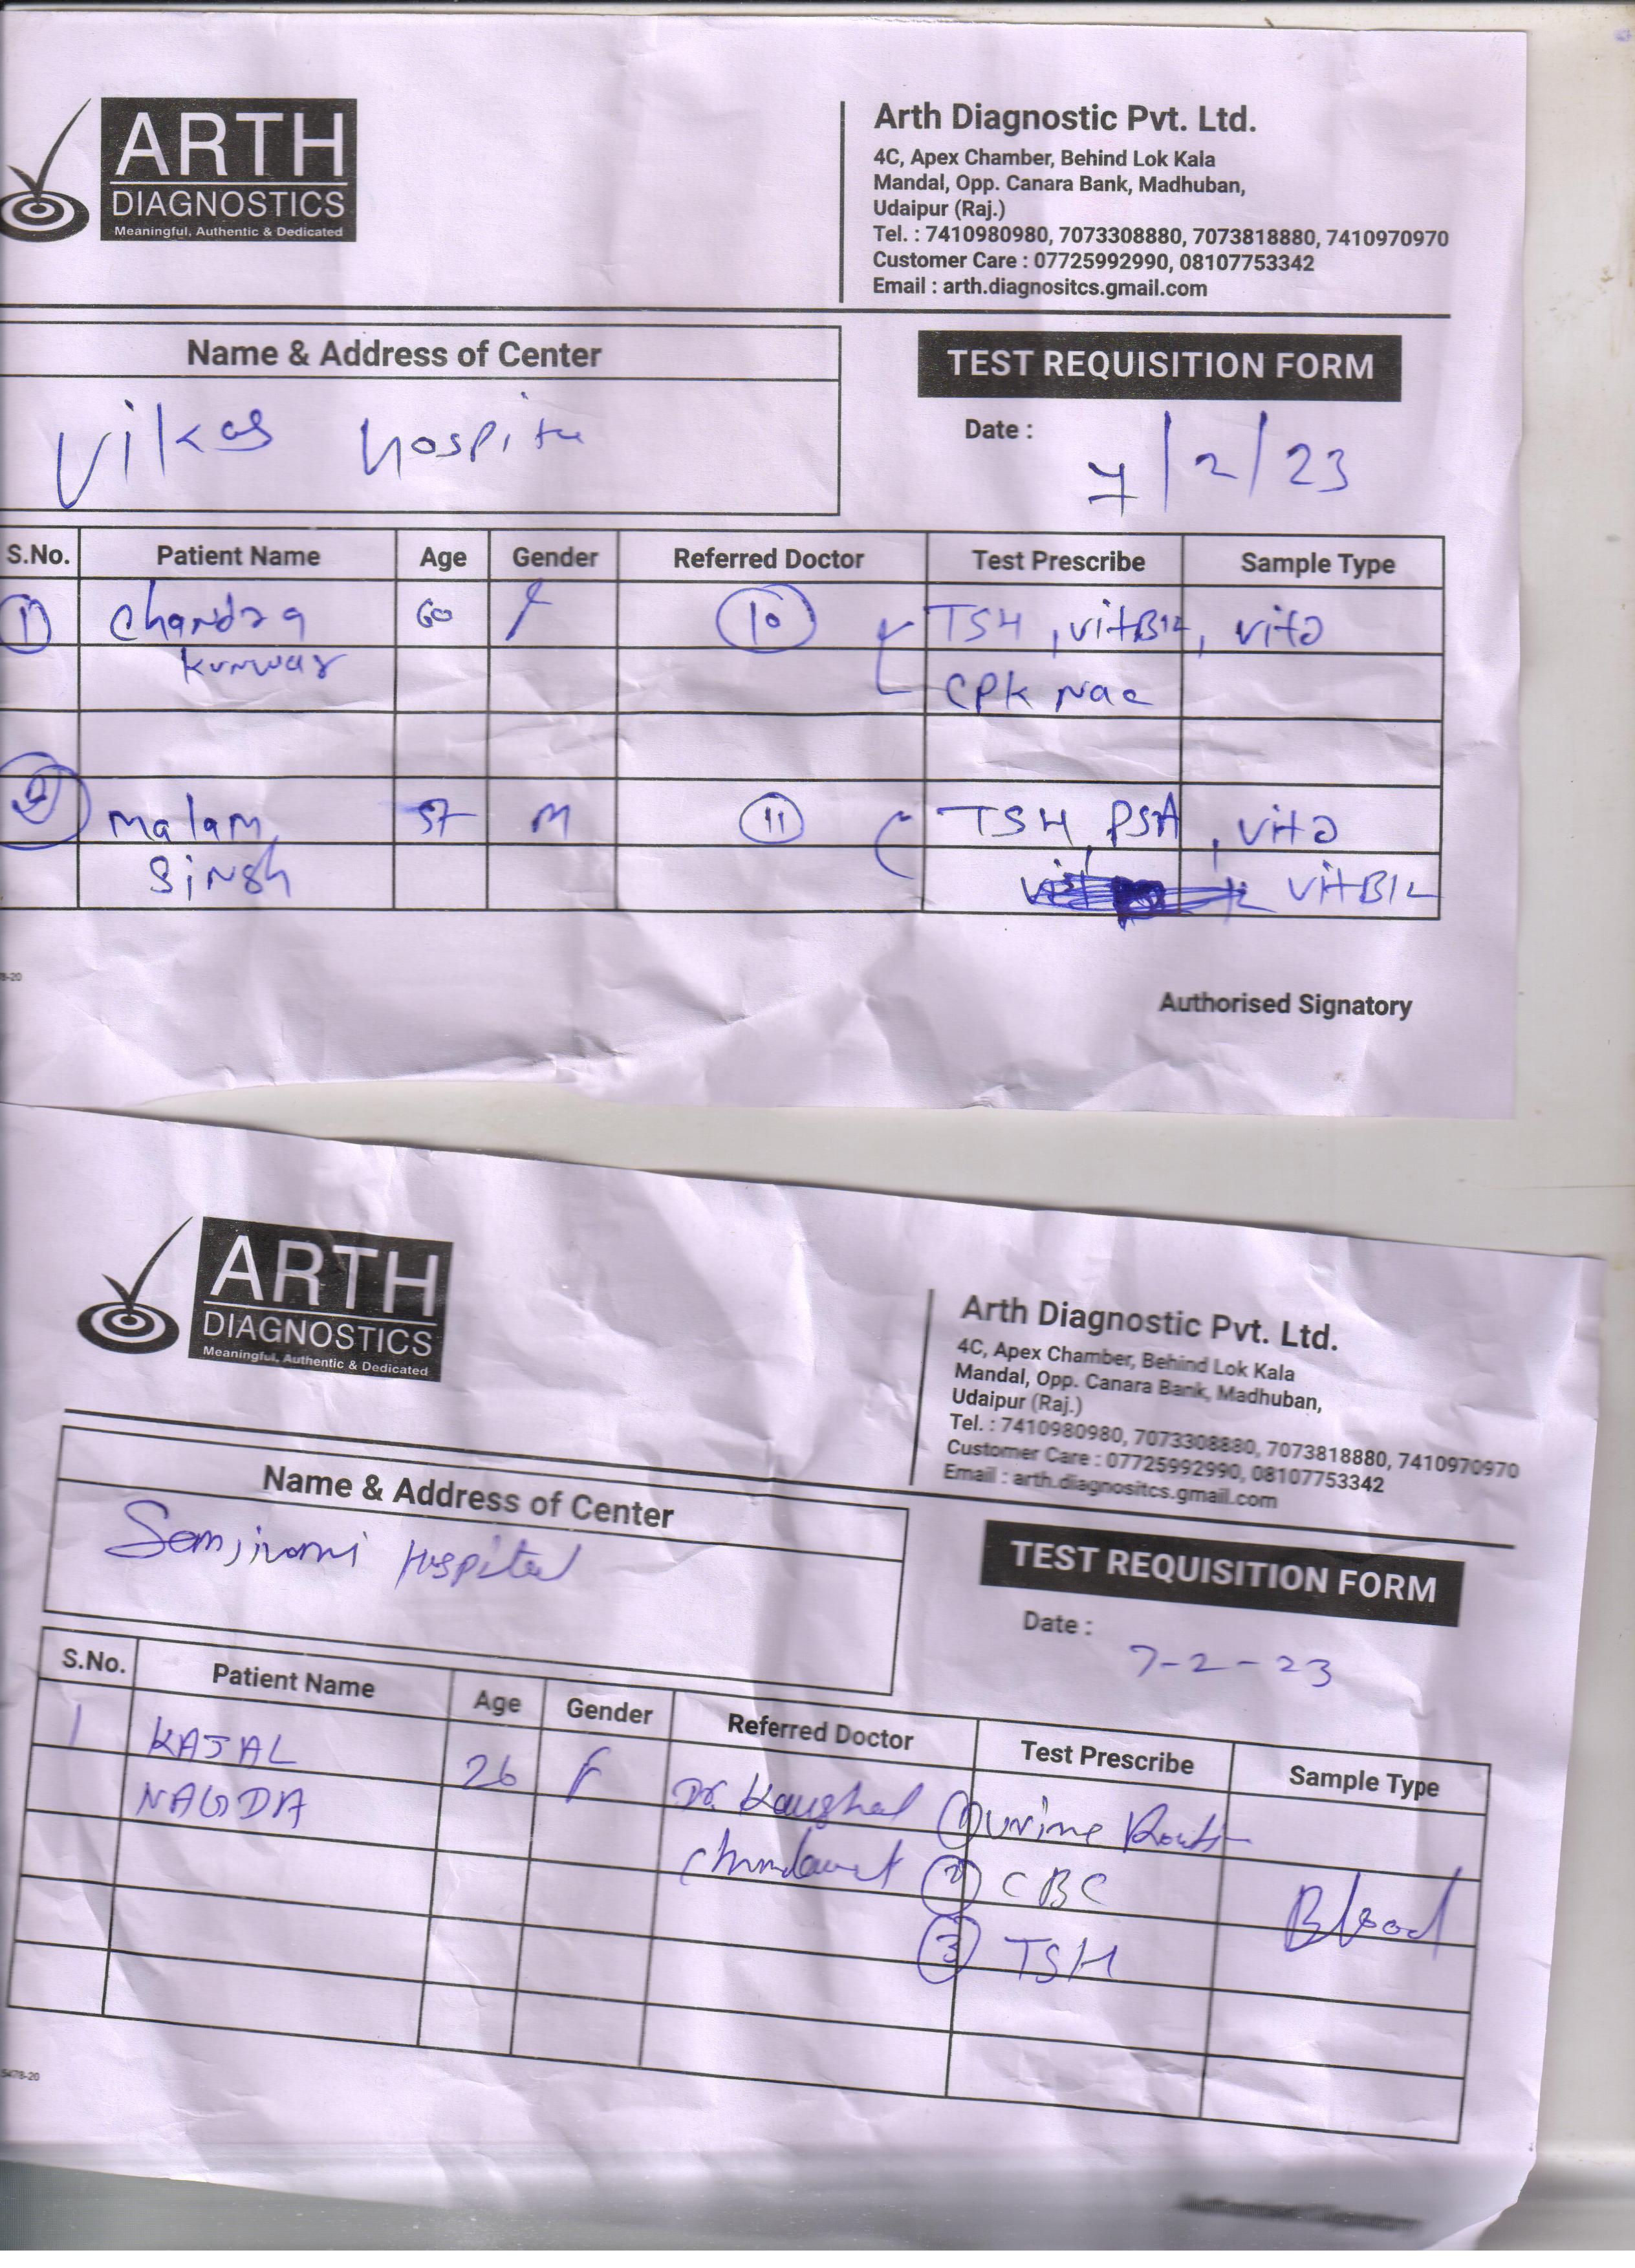 ARTH
DIAGNOSTICS
Meaningful, Authentic & Dedicated
Arth Diagnostic Pvt. Ltd.
4C, Apex Chamber, Behind Lok Kala
Mandal, Opp. Canara Bank, Madhuban,
Udaipur (Raj.)
Tel. : 7410980980, 7073308880, 7073818880, 7410970970
Customer Care : 07725992990, 08107753342
Email : arth.diagnositcs.gmail.com
Name & Address of Center
TEST REQUISITION FORM
Vikas Hospital
Date : 7/2/23
S.No. Patient Name Age Gender Referred Doctor Test Prescribe Sample Type
1 Chandra 60 F 10 TSH, vitB12, vitD
Kunwar CPK Nac
2 Malam 57 M 11 TSH, PSA, vitD
Singh vitB12
Authorised Signatory
ARTH
DIAGNOSTICS
Meaningful, Authentic & Dedicated
Arth Diagnostic Pvt. Ltd.
4C, Apex Chamber, Behind Lok Kala
Mandal, Opp. Canara Bank, Madhuban,
Udaipur (Raj.)
Tel. : 7410980980, 7073308880, 7073818880, 7410970970
Customer Care : 07725992990, 08107753342
Email : arth.diagnositcs.gmail.com
Name & Address of Center
TEST REQUISITION FORM
Sanjivani Hospital
Date : 7-2-23
S.No. Patient Name Age Gender Referred Doctor Test Prescribe Sample Type
1 KAJAL 26 F Dr. Kaushal 1 Urine Routi
NAGDA Chundawat 2 CBC Blood
3 TSH
5478-20